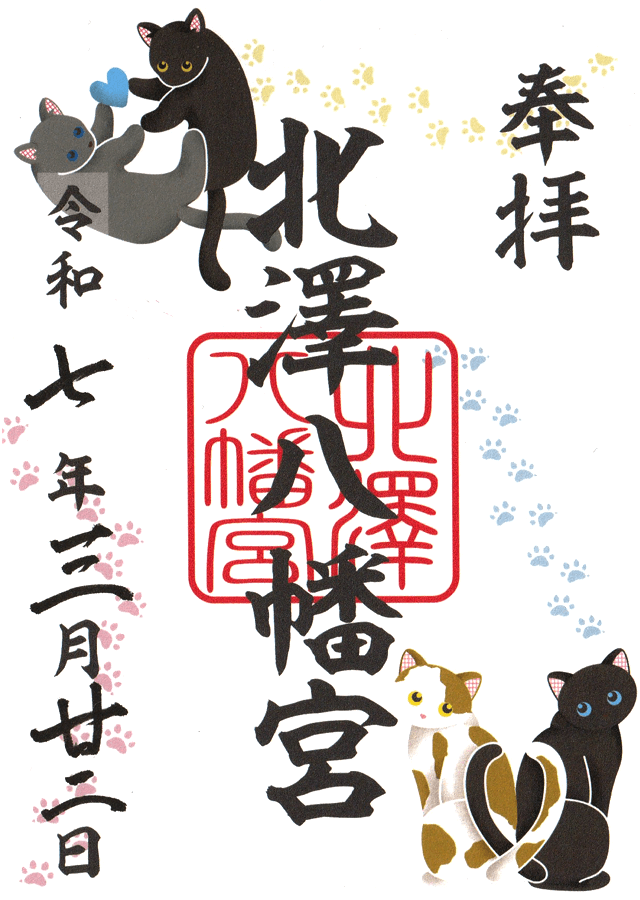 奉拝
北澤八幡宮
北澤八幡宮
令和七年三月廿二日